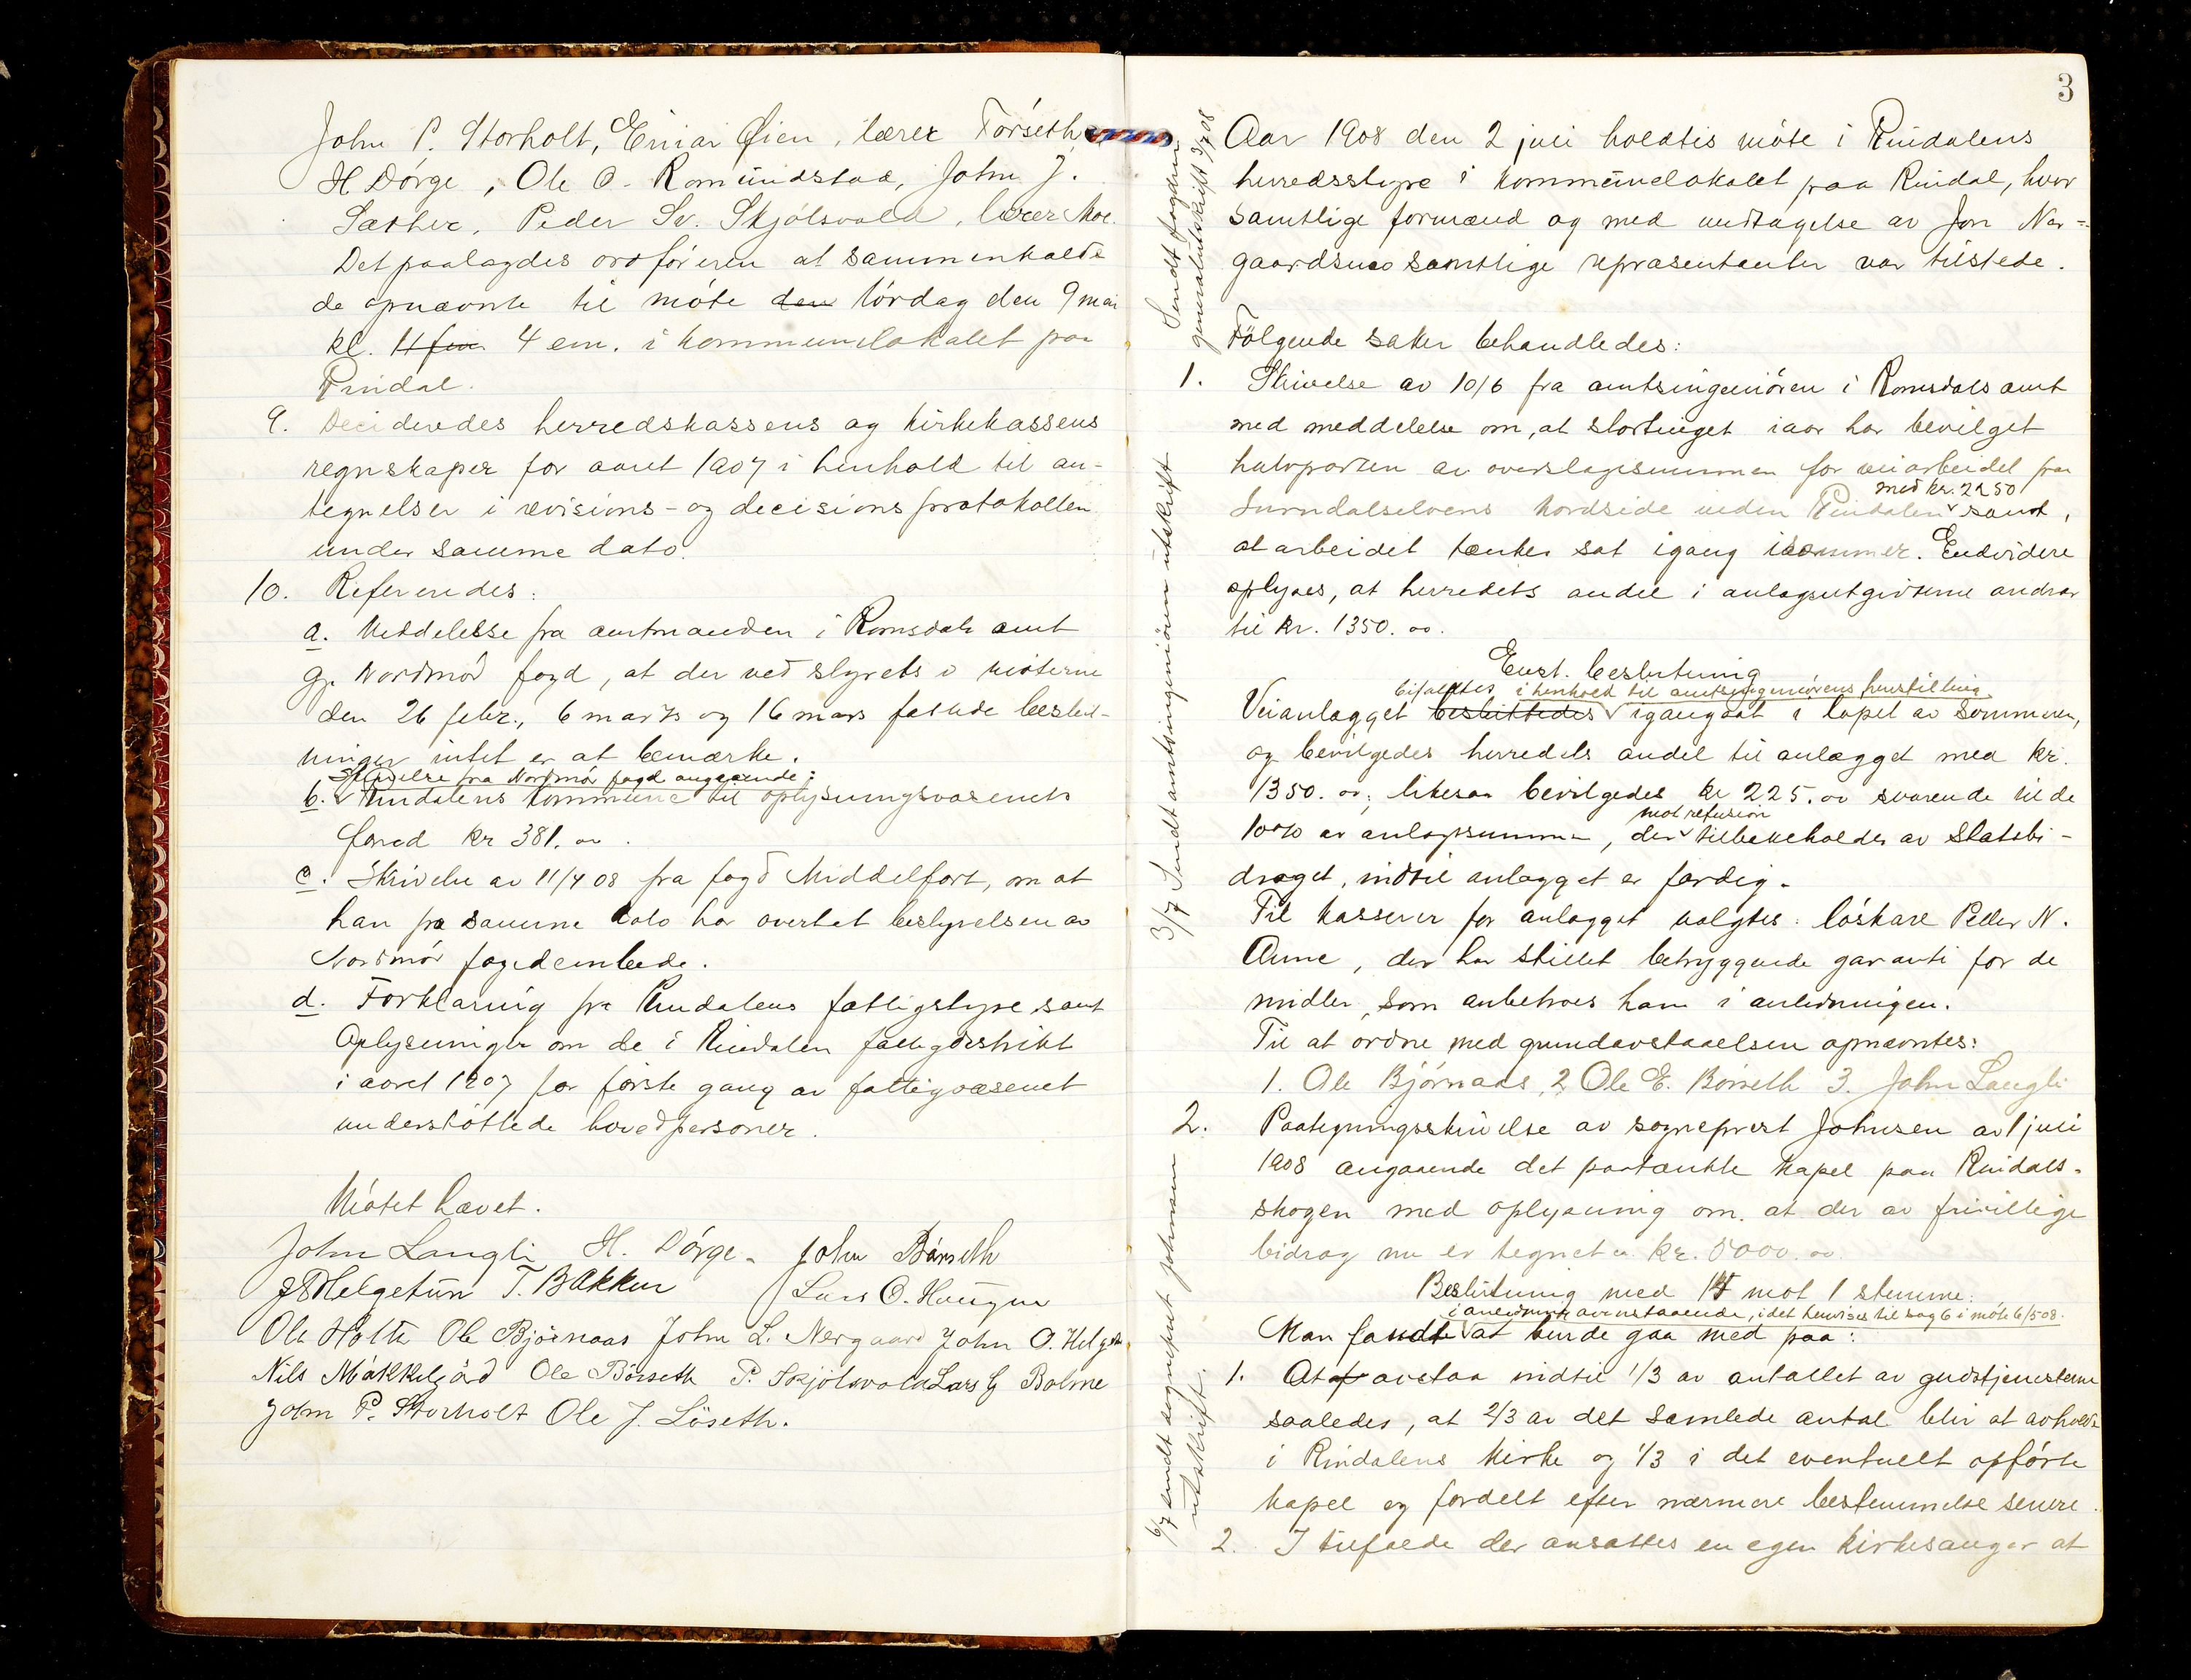 John P. Storholt, Einar Øien, lærer Torseth,
H Dørge, Ole O. Romundstad, John J.
Sæther, Peder Sv. Skjølsvold, lærer Moe.
Det paalagdes ordføreren at sammenkalde
de opnævnte til møte den lørdag den 9 mai
kl. 11 fm. 4 em. i kommunelokalet paa
Rindal.
9. Decideredes herredskassens og kirkekassens
regnskaper for aaret 1907 i henhold til an-
tegnelser i revisions- og decisionsprotokollen
under samme dato.
10. Refereredes:
a. Meddelelse fra amtmanden i Romsdals amt
gj. Nordmør fogd, at der ved styrets i møterne
den 26 febr., 6 mars og 16 mars fattede beslut-
ninger intet er at bemærke.
Skrivelse fra Nordmør fogd angaaende:
b. Rindalens kommune til oplysningsvæsenets
fond kr 381.00.
c. Skrivelse av 11/4 08 fra fogd Middelfart, om at
han fra samme dato har overtat bestyrelsen av
Nordmør fogedembede.
d. Forklaring fra Rindalens fattigstyre samt
Oplysninger om de i Rindalen fattigdistrikt
i aaret 1907 for første gang av fattigvæsenet
understøttede hovedpersoner.
Møtet hævet.
John Langli H. Dørge. John Børseth
J S Helgetun T. Bakken Lars O. Haugen
Ole Holte Ole Bjørnaas John L. Nergaard John O. Helget
Nils Møkkelgård Ole Børseth P. Skjølsvold Lars G Bolme
John P. Storholt Ole J. Løseth.
3
Sendt fogden
generalutskrift 3/7 08
Aar 1908 den 2 juli holdtes møte i Rindalens
herredsstyre i kommunelokalet paa Rindal, hvor
samtlige formænd og med undtagelse av Jon Ner-
gaardsmo samtlige repræsentanter var tilstede.
Følgende saker behandledes:
3/7 Sendt amtsingeniøren utskrift
1. Skrivelse av 10/6 fra amtsingeniøren i Romsdals amt
med meddelelse om, at stortinget iaar har bevilget
halvparten av overslagssummen for veiarbeidet paa
med kr. 2250
Surndalselvens nordside inden Rindalen samt,
at arbeidet tænkes sat igang isommer. Endvidere
oplyses, at herredets andel i anlægsutgifterne andrar
til kr. 1350.00.
Enst. beslutning
bifaldtes i henhold til amtsingeniørens henstilling
Veianlægget besluttedes igangsat i løpet av sommeren,
og bevilgedes herredets andel til anlægget med kr.
1350.00; likesaa bevilgedes kr 225.00 svarende til de
mot refusion
10% av anlægssummen, der tilbakeholdes av statsbi-
draget, indtil anlægget er færdig.
Til kasserer for anlægget valgtes: løskare Peder N.
Aune, der har stillet betryggende garanti for de
midler, som anbetroes ham i anledningen.
Til at ordne med grundavstaaelsen opnævntes:
1. Ole Bjørnaas, 2 Ole E. Børseth 3. John Langli
6/7 sendt sogneprest Johnsen
utskrift.
2. Paategningsskrivelse av sogneprest Johnsen av 1 juli
1908 angaaende det paatænkte kapel paa Rindals-
skogen med oplysning om, at der av frivillige
bidrag nu er tegnet ca. kr. 5000.00.
Beslutning med 15 mot 1 stemme:
i anledning ovenstaaende, idet henvises til sag 6 i møte 6/5 08.
Man fandt at burde gaa med paa:
1. At avstaa indtil 1/3 av antallet av gudstjenesterne
saaledes, at 2/3 av det samlede antal blir at avholde
i Rindalens kirke og 1/3 i det eventuelt opførte
kapel og fordelt efter nærmere bestemmelse senere.
2. I tilfælde der ansættes en egen kirkesanger at